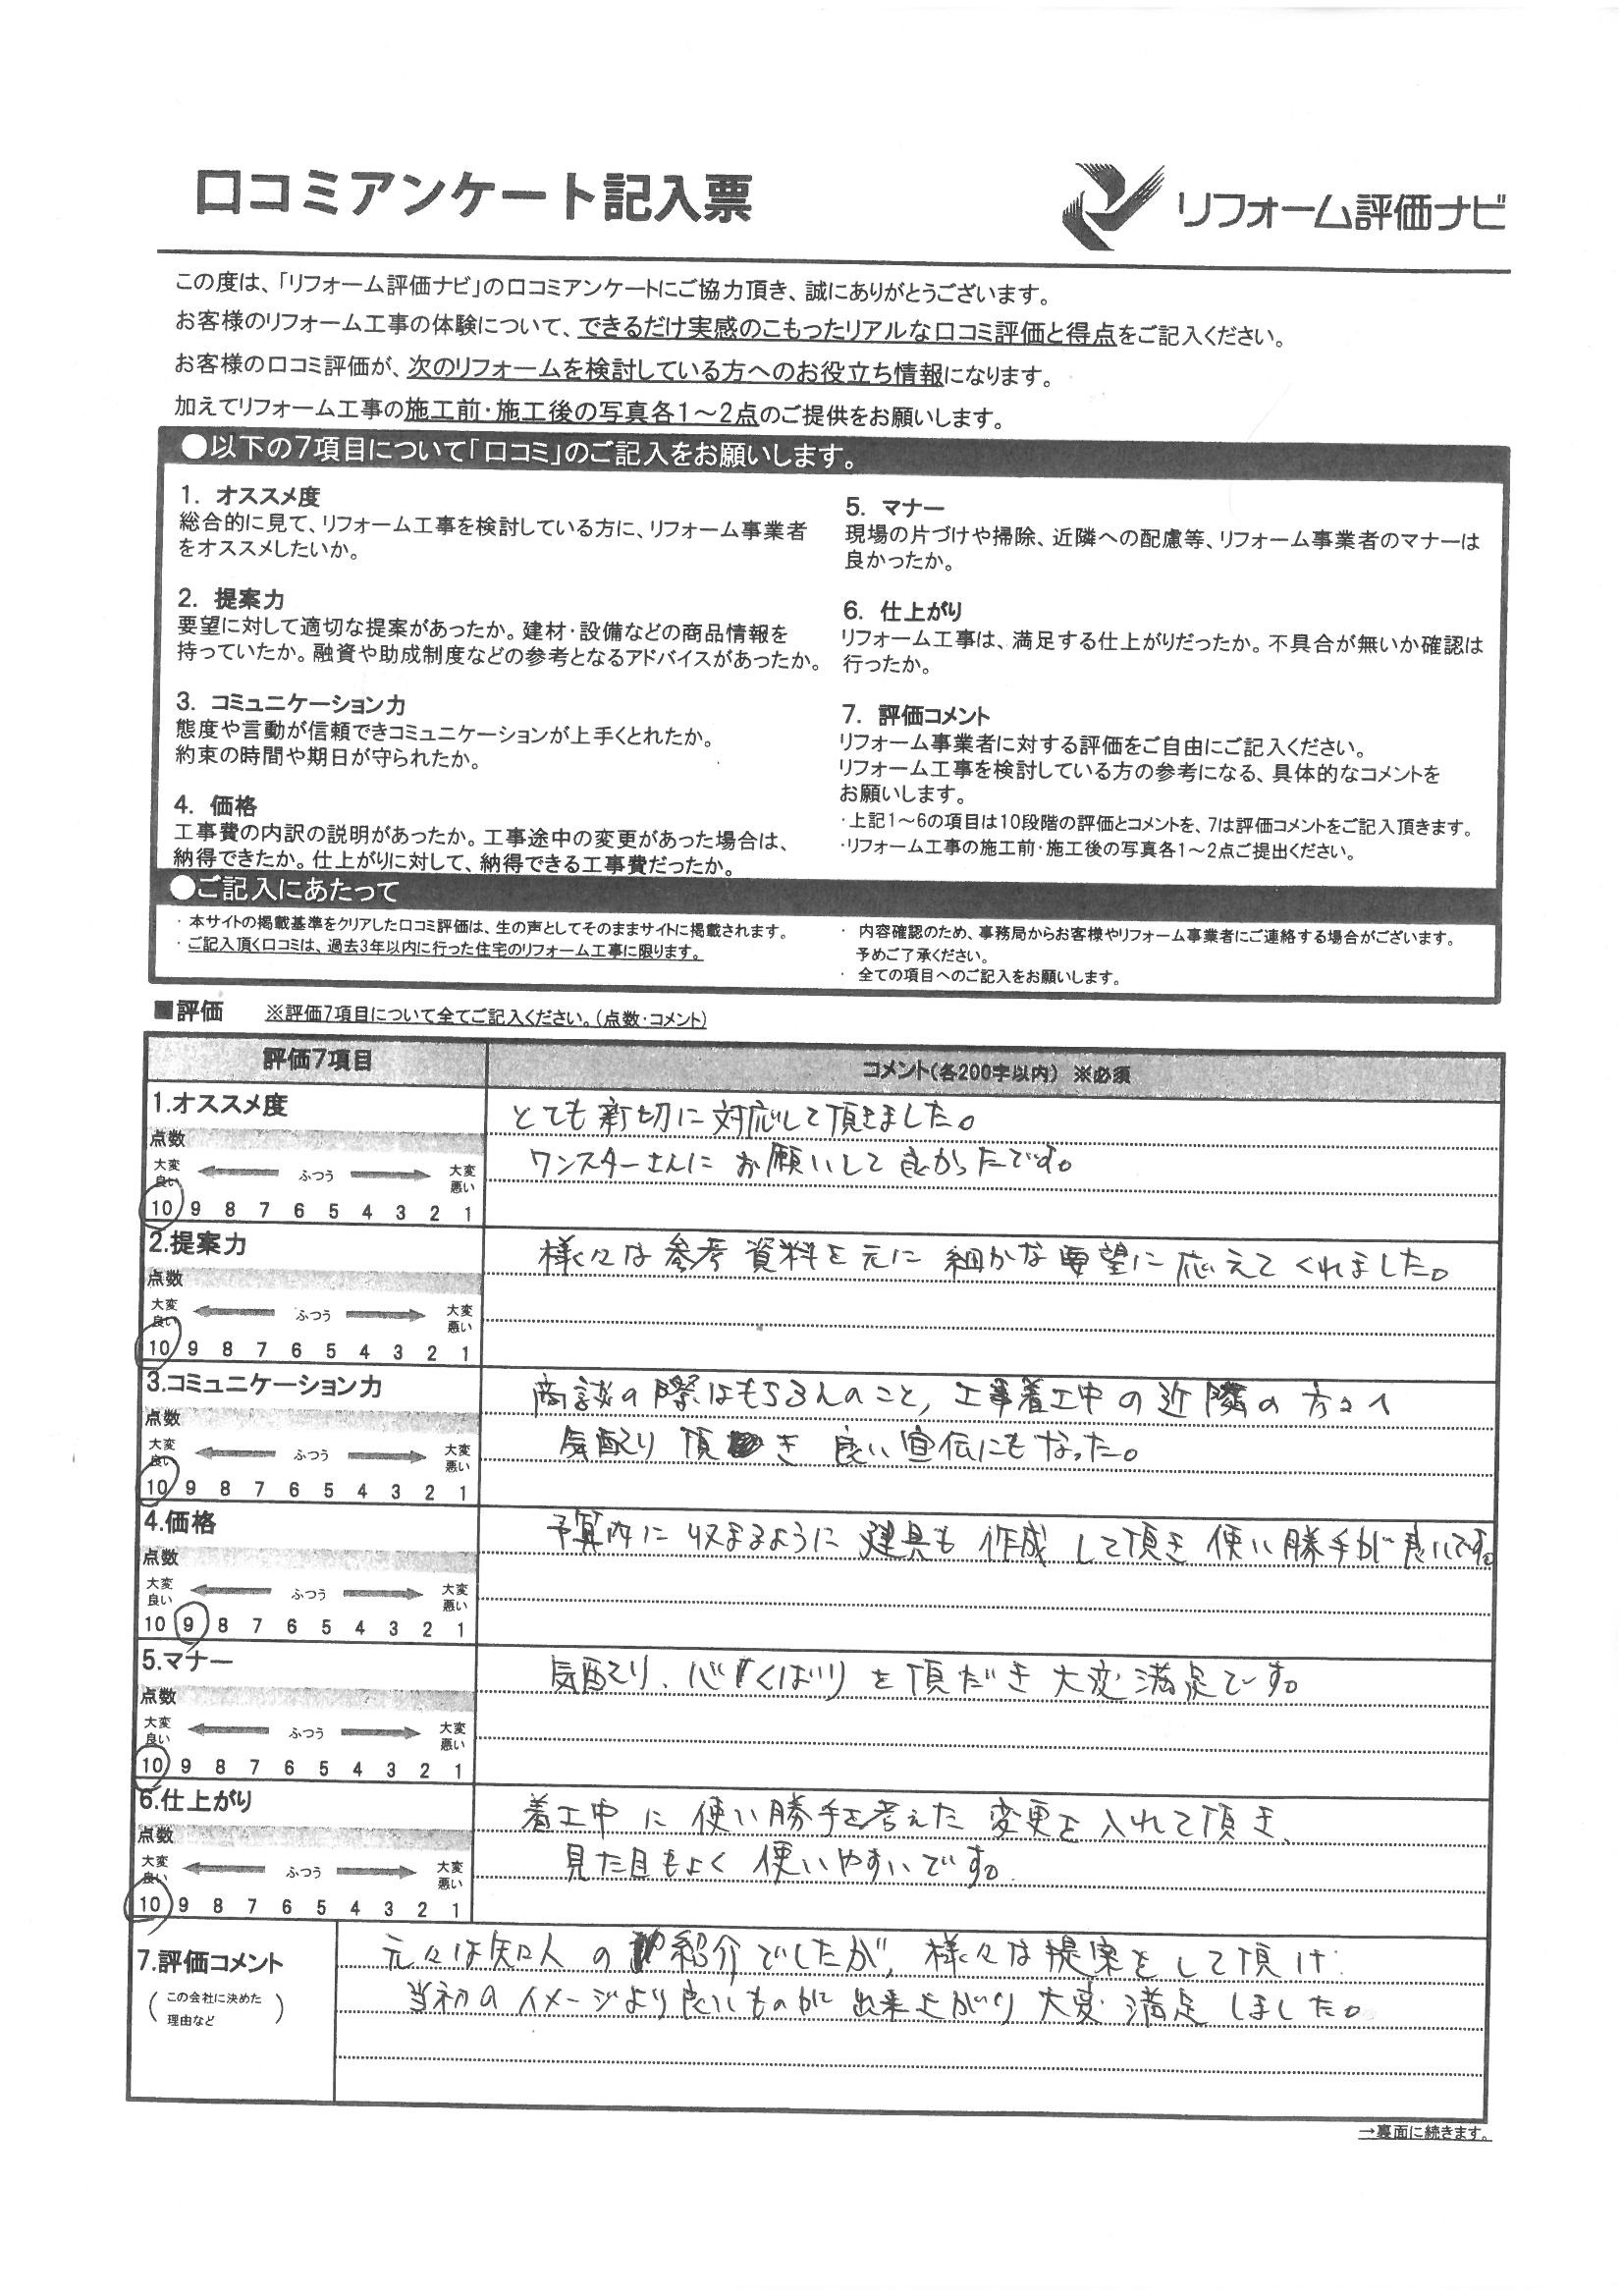 口コミアンケート記入票
リフォーム評価ナビ
この度は、「リフォーム評価ナビ」の口コミアンケートにご協力頂き、誠にありがとうございます。
お客様のリフォーム工事の体験について、できるだけ実感のこもったリアルな口コミ評価と得点をご記入ください。
お客様の口コミ評価が、次のリフォームを検討している方へのお役立ち情報になります。
加えてリフォーム工事の施工前・施工後の写真各1～2点のご提供をお願いします。
●以下の7項目について「口コミ」のご記入をお願いします。
1. オススメ度
総合的に見て、リフォーム工事を検討している方に、リフォーム事業者
をオススメしたいか。
2. 提案力
要望に対して適切な提案があったか。建材・設備などの商品情報を
持っていたか。融資や助成制度などの参考となるアドバイスがあったか。
3. コミュニケーション力
態度や言動が信頼できコミュニケーションが上手くとれたか。
約束の時間や期日が守られたか。
4. 価格
工事費の内訳の説明があったか。工事途中の変更があった場合は、
納得できたか。仕上がりに対して、納得できる工事費だったか。
5. マナー
現場の片づけや掃除、近隣への配慮等、リフォーム事業者のマナーは
良かったか。
6. 仕上がり
リフォーム工事は、満足する仕上がりだったか。不具合が無いか確認は
行ったか。
7. 評価コメント
リフォーム事業者に対する評価をご自由にご記入ください。
リフォーム工事を検討している方の参考になる、具体的なコメントを
お願いします。
・上記1～6の項目は10段階の評価とコメントを、7は評価コメントをご記入頂きます。
・リフォーム工事の施工前・施工後の写真各1～2点ご提出ください。
●ご記入にあたって
・本サイトの掲載基準をクリアした口コミ評価は、生の声としてそのままサイトに掲載されます。
・ご記入頂く口コミは、過去3年以内に行った住宅のリフォーム工事に限ります。
・内容確認のため、事務局からお客様やリフォーム事業者にご連絡する場合がございます。
予めご了承ください。
・全ての項目へのご記入をお願いします。
■評価 ※評価7項目について全てご記入ください。（点数・コメント）
評価7項目 コメント（各200字以内） ※必須
1.オススメ度
点数
大変良い ふつう 大変悪い
10 9 8 7 6 5 4 3 2 1
とても親切に対応して頂きました。
ワンスターさんにお願いして良かったです。
2.提案力
点数
大変良い ふつう 大変悪い
10 9 8 7 6 5 4 3 2 1
様々な参考資料を元に細かな要望に応えてくれました。
3.コミュニケーション力
点数
大変良い ふつう 大変悪い
10 9 8 7 6 5 4 3 2 1
商談の際はもちろんのこと、工事着工中の近隣の方々へ
気配り頂き良い宣伝にもなった。
4.価格
点数
大変良い ふつう 大変悪い
10 9 8 7 6 5 4 3 2 1
予算内に収まるように建具も作成して頂き使い勝手が良いです。
5.マナー
点数
大変良い ふつう 大変悪い
10 9 8 7 6 5 4 3 2 1
気配り、心くばりを頂だき大変満足です。
6.仕上がり
点数
大変良い ふつう 大変悪い
10 9 8 7 6 5 4 3 2 1
着工中に使い勝手を考えた変更を入れて頂き、
見た目もよく使いやすいです。
7.評価コメント
（この会社に決めた
理由など）
元々は知人の紹介でしたが、様々な提案をして頂け
当初のイメージより良いものが出来上がり大変満足しました。
→裏面に続きます。